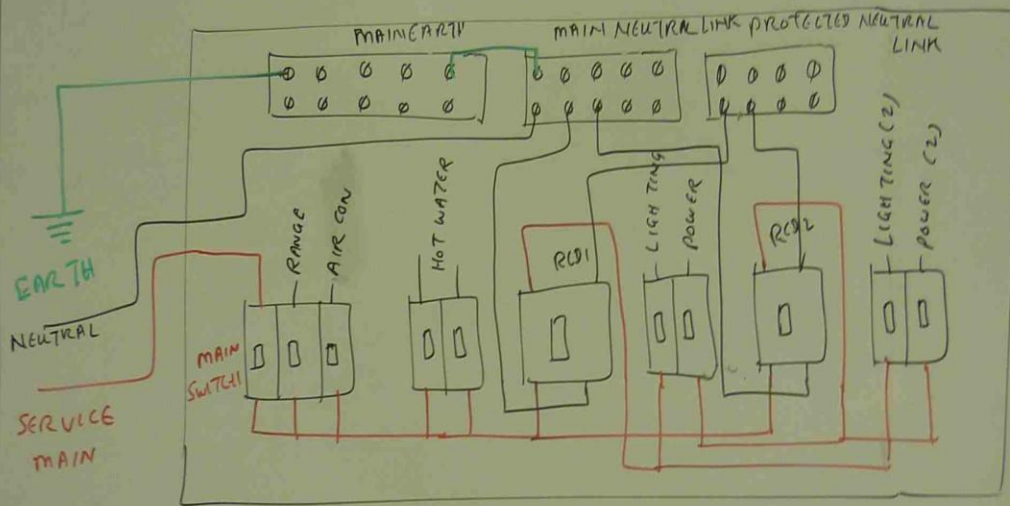 MAIN EARTH
MAIN NEUTRAL LINK
PROTECTED NEUTRAL
LINK
EARTH
NEUTRAL
SERVICE
MAIN
MAIN
SWITCH
RANGE
AIR CON
HOT WATER
RCD1
LIGHTING
POWER
RCD2
LIGHTING (2)
POWER (2)